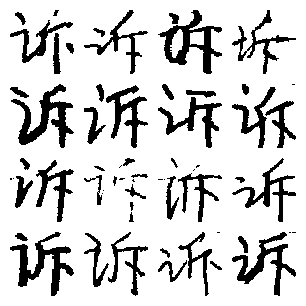 诉诉诉诉
诉诉诉诉
诉诉诉诉
诉诉诉诉